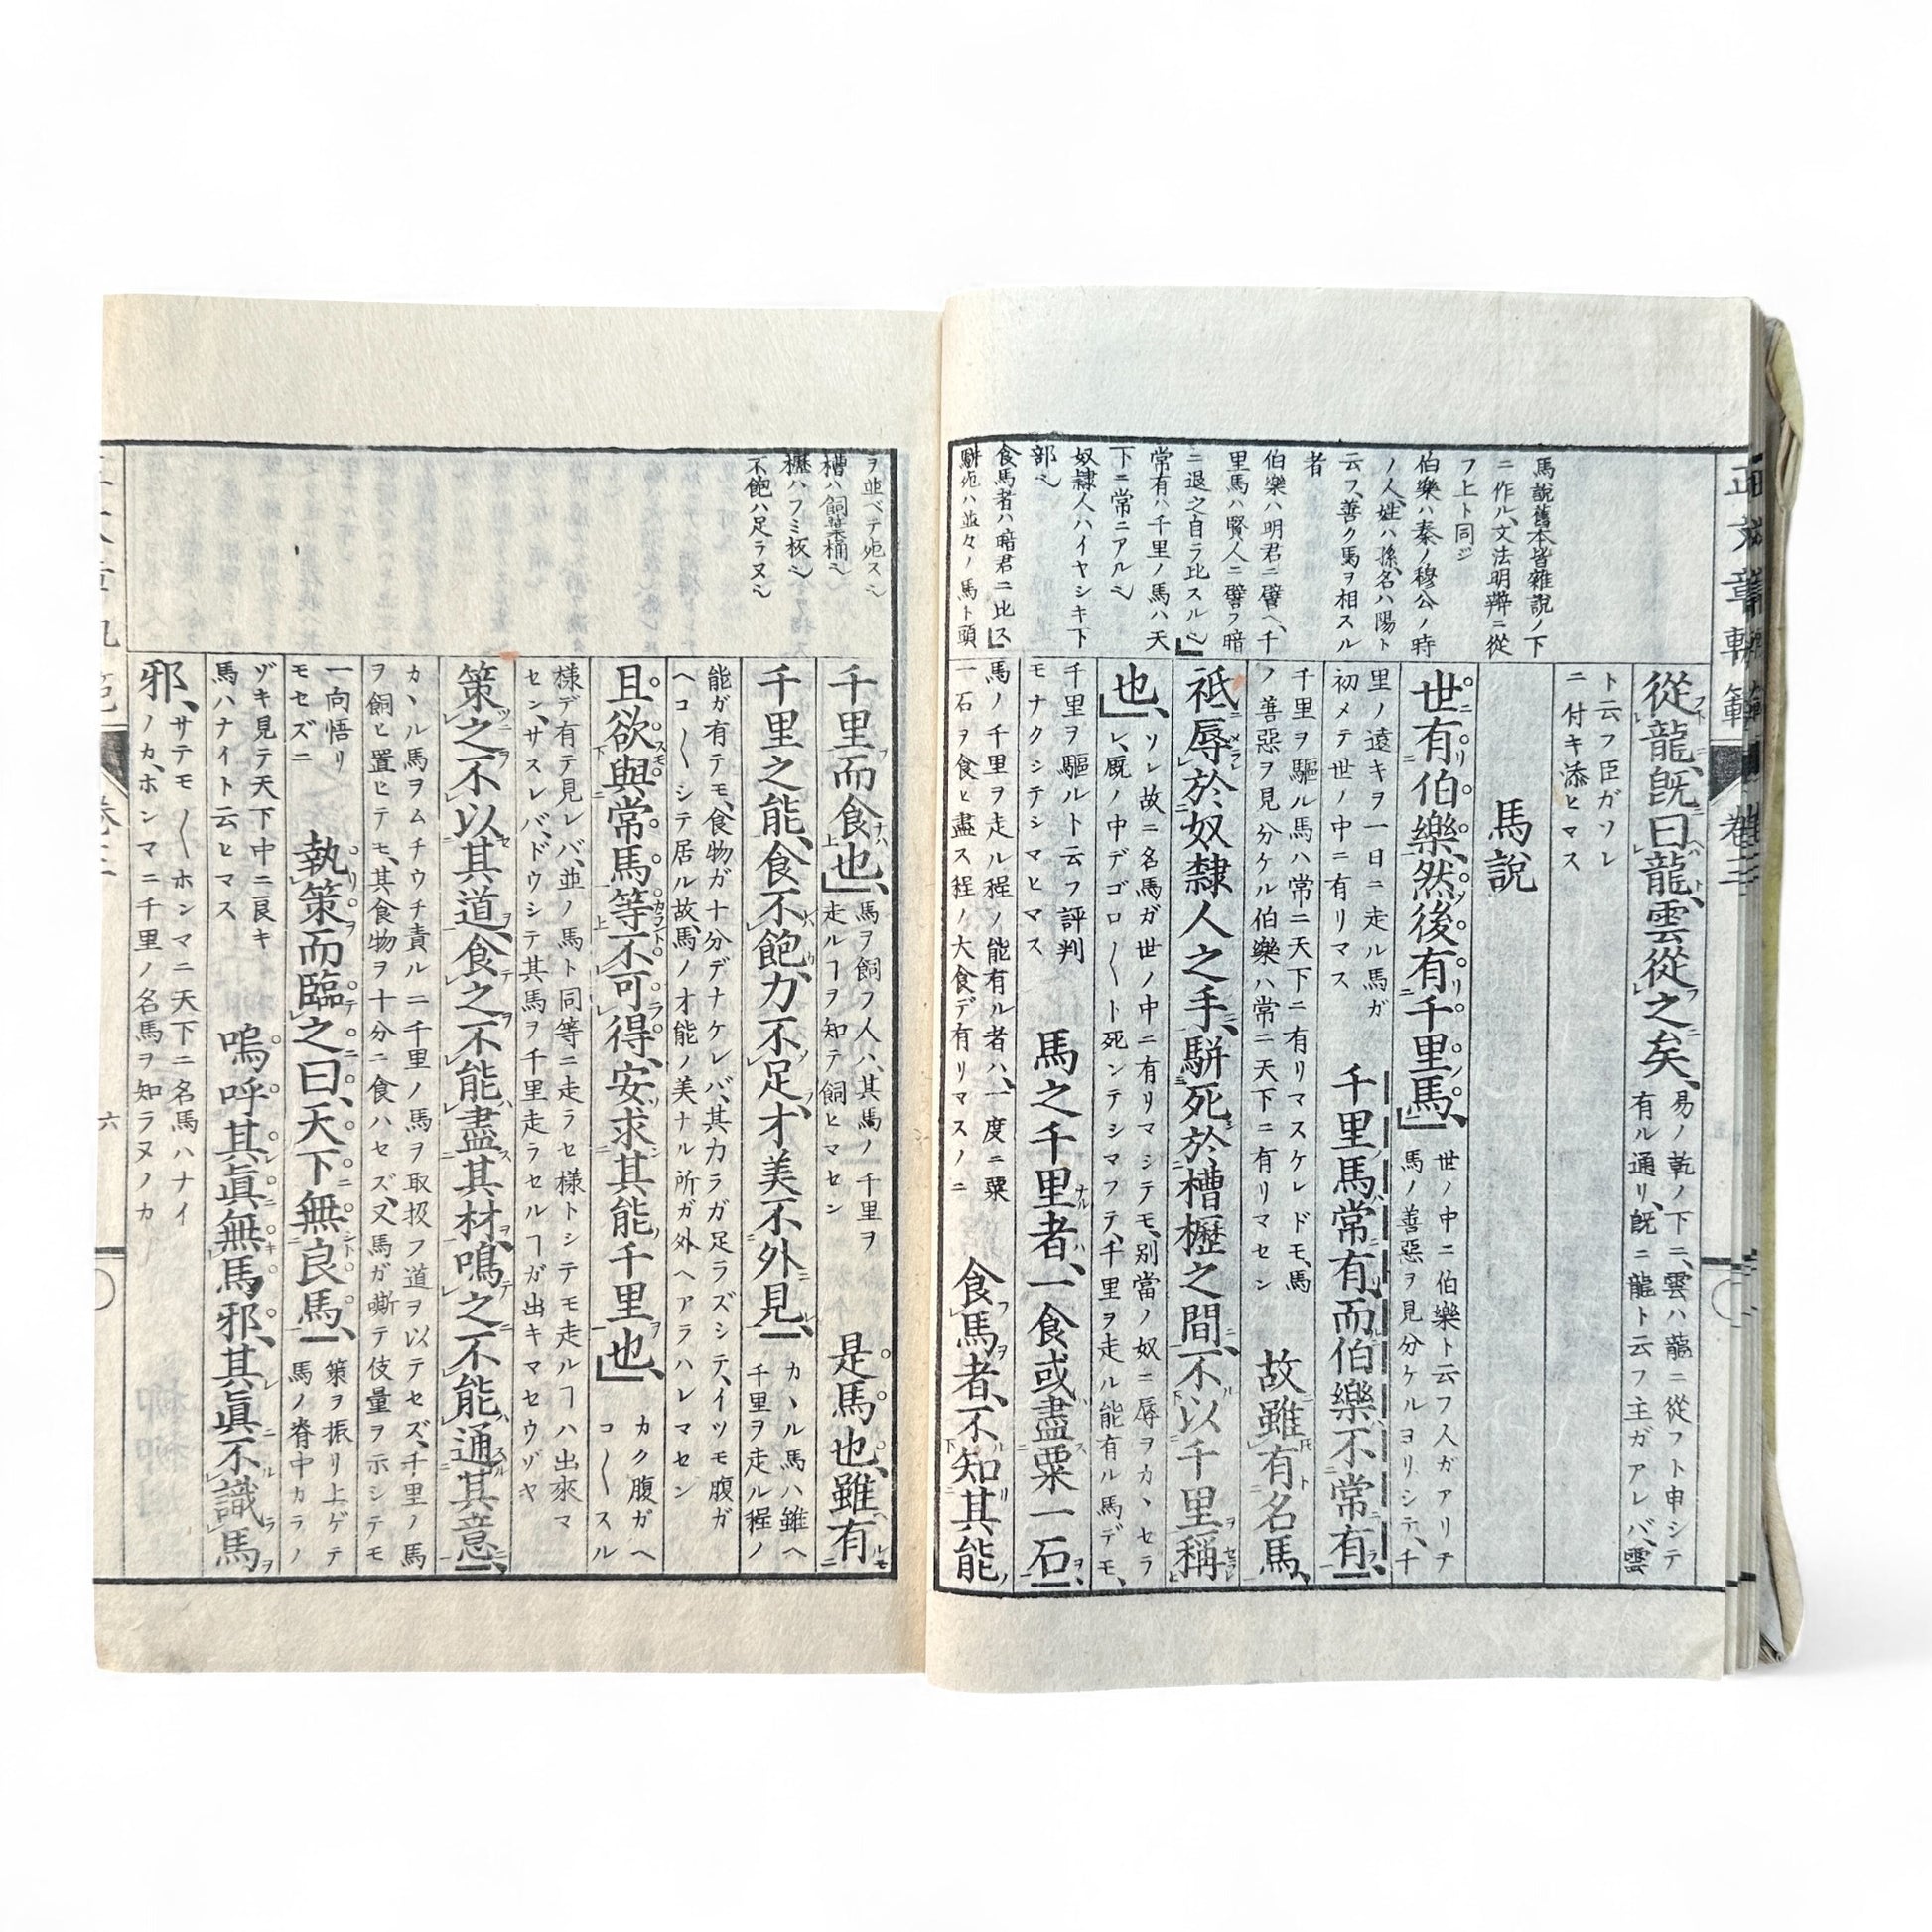 正文章軌範
卷三
馬說舊本皆雜說ノ下
ニ作ル、文法明辯ニ從
フ上ト同ジ
伯樂ハ秦ノ穆公ノ時
ノ人、姓ハ孫、名ハ陽ト
云フ、善ク馬ヲ相スル
者
伯樂ハ明君ニ譬ヘ、千
里馬ハ賢人ニ譬フ暗
ニ退之自ラ比スル也
常有ハ千里ノ馬ハ天
下ニ常ニアル也
奴隸人ハイヤシキ下
部也
食馬者ハ暗君ニ比ス
駢死ハ並々ノ馬ト頭
從龍、既曰龍、雲從之矣、
易ノ乾ノ下ニ、雲ハ龍ニ從フト申シテ
有ル通リ、既ニ龍ト云フ主ガアレバ、雲
ト云フ臣ガソレ
ニ付キ添ヒマス
馬說
世有伯樂、然後有千里馬、
世ノ中ニ伯樂ト云フ人ガアリテ
馬ノ善惡ヲ見分ケルヨリシテ、千
里ノ遠キヲ一日ニ走ル馬ガ
初メテ世ノ中ニ有リマス
千里馬常有、而伯樂不常有、
千里ヲ驅ル馬ハ常ニ天下ニ有リマスケレドモ、馬
ノ善惡ヲ見分ケル伯樂ハ常ニ天下ニ有リマセン
故雖有名馬、
祗辱於奴隸人之手、駢死於槽櫪之間、不以千里稱
也、
ソレ故ニ名馬ガ世ノ中ニ有リマシテモ、別當ノ奴ニ辱ヲカヽセラ
レ、厩ノ中デゴロ〳〵ト死ンデシマフテ、千里ヲ走ル能有ル馬デモ、
千里ヲ驅ルト云フ評判
モナクシテシマヒマス
馬之千里者、一食或盡粟一石、
馬ノ千里ヲ走ル程ノ能有ル者ハ、一度ニ粟
一石ヲ食ヒ盡ス程ノ大食デ有リマスノニ
食馬者、不知其能
ヲ並ベテ死ス也
槽ハ飼葉桶也
櫪ハフミ板也
不飽ハ足ラヌ也
千里而食也、
馬ヲ飼フ人ハ、其馬ノ千里ヲ
走ルヿヲ知テ飼ヒマセン
是馬也、雖有
千里之能、食不飽、力不足、才美不外見、
カヽル馬ハ雖ヘ
千里ヲ走ル程ノ
能ガ有テモ、食物ガ十分デナケレバ、其力ラガ足ラズシテ、イツモ腹ガ
ヘコ〳〵シテ居ル故、馬ノ才能ノ美ナル所ガ外ヘアラハレマセン
且欲與常馬等不可得、安求其能千里也、
カク腹ガヘ
コ〳〵スル
樣デ有テ見レバ、並ノ馬ト同等ニ走ラセ樣トシテモ走ルヿハ出來マ
セン、サスレバ、ドウシテ其馬ヲ千里走ラセルヿガ出キマセウゾヤ
策之不以其道、食之不能盡其材、鳴之不能通其意、
カヽル馬ヲムチウチ責ルニ千里ノ馬ヲ取扱フ道ヲ以テセズ、千里ノ馬
ヲ飼ヒ置ヒテモ、其食物ヲ十分ニ食ハセズ、又馬ガ嘶テ伎量ヲ示シテモ
一向悟リ
モセズニ
執策而臨之曰、天下無良馬、
策ヲ振リ上ゲテ
馬ノ脊中カラノ
ヅキ見テ天下中ニ良キ
馬ハナイト云ヒマス
嗚呼其眞無馬邪、其眞不識馬
邪、
サテモ〳〵ホンマニ天下ニ名馬ハナイ
ノカ、ホンマニ千里ノ名馬ヲ知ラヌノカ
六